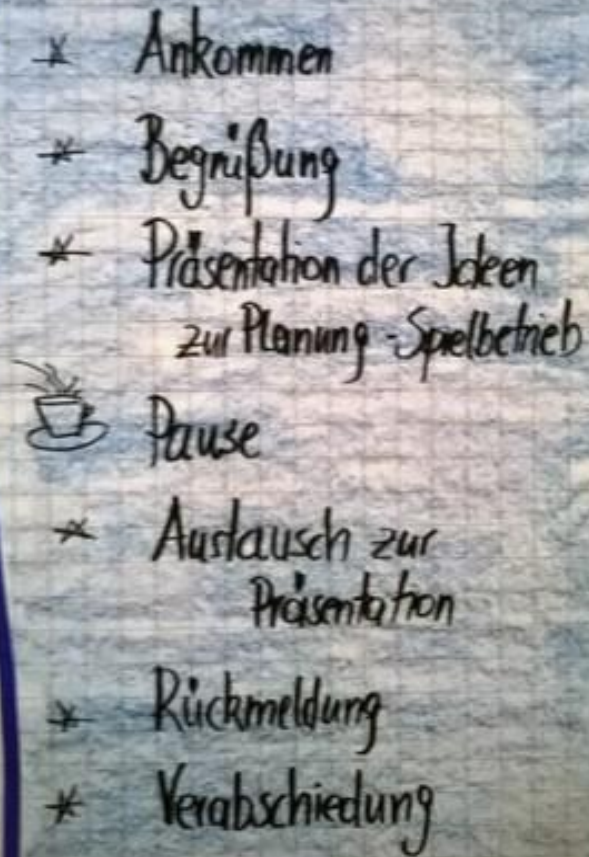 * Ankommen
* Begrüßung
* Präsentation der Ideen
zur Planung - Spielbetrieb
Pause
* Austausch zur
Präsentation
* Rückmeldung
* Verabschiedung